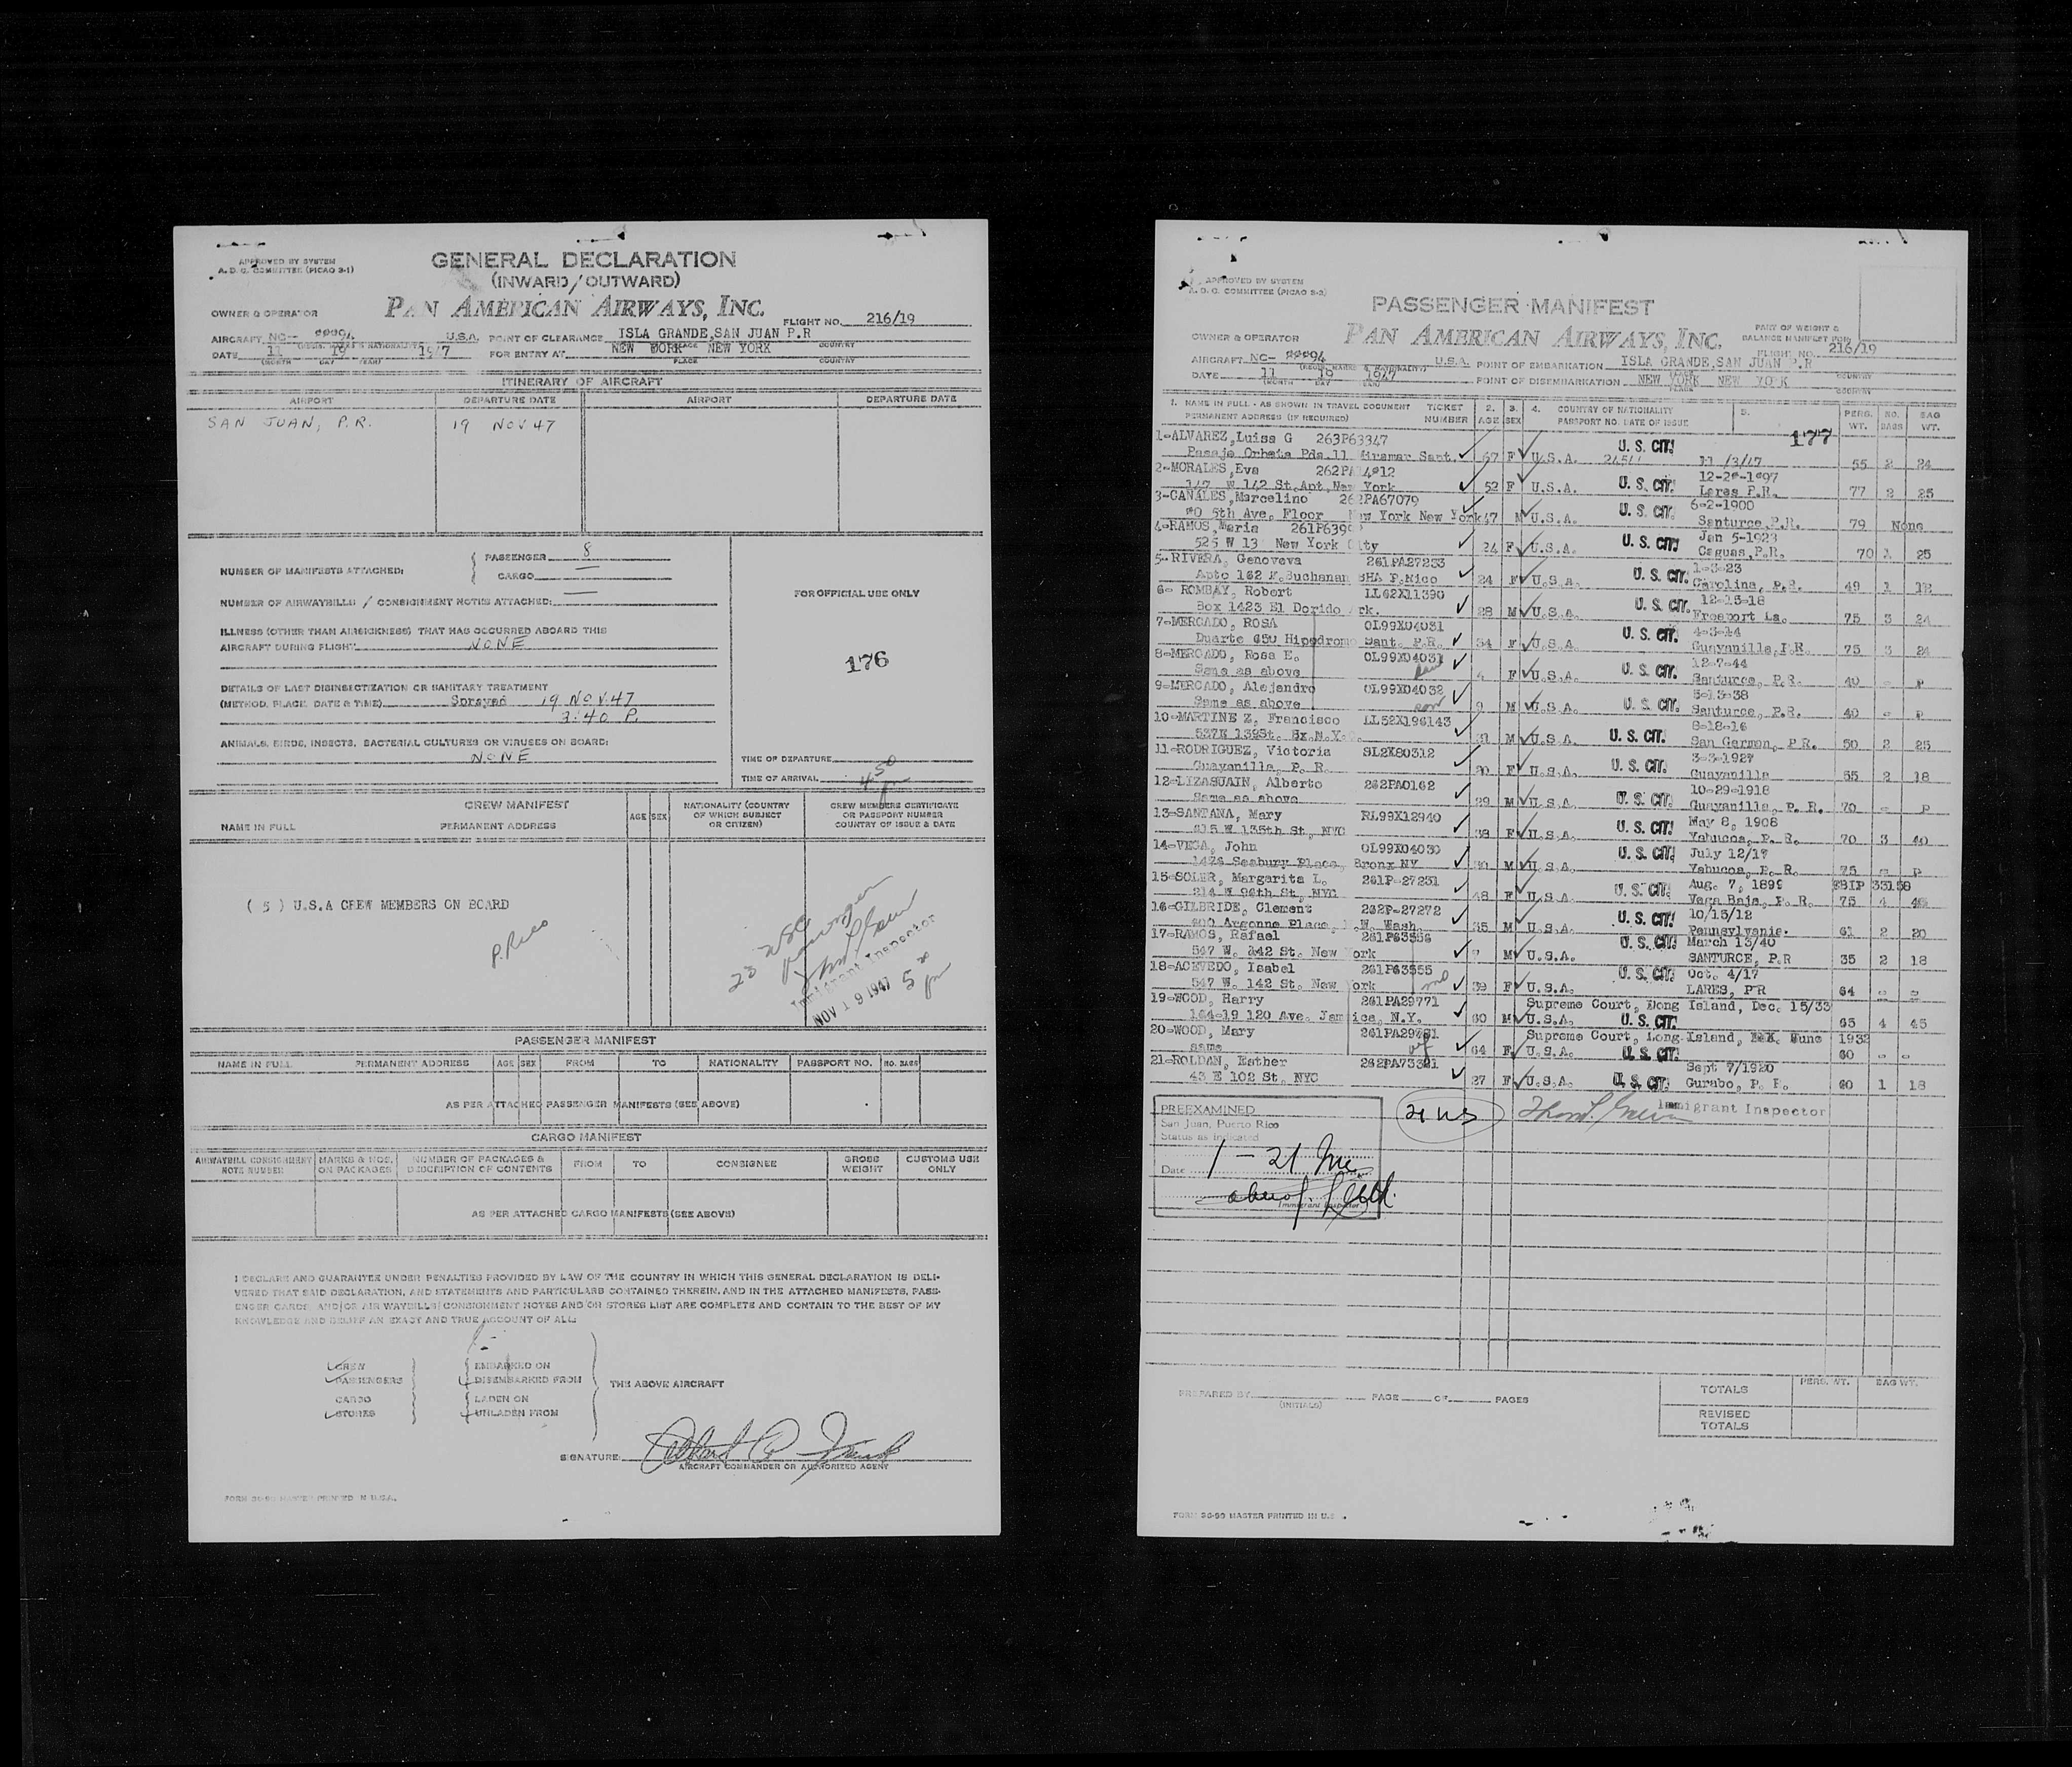 APPROVED BY SYSTEM
A. D. C. COMMITTEE (PICAO 3-1)
GENERAL DECLARATION
(INWARD/OUTWARD)
OWNER & OPERATOR
PAN AMERICAN AIRWAYS, INC.
FLIGHT NO. 216/19
AIRCRAFT NC- U.S.A. POINT OF CLEARANCE ISLA GRANDE, SAN JUAN P.R
DATE 11 19 1947 FOR ENTRY AT NEW YORK NEW YORK
(MONTH DAY YEAR) PLACE COUNTRY
ITINERARY OF AIRCRAFT
AIRPORT DEPARTURE DATE AIRPORT DEPARTURE DATE
SAN JUAN, P.R. 19 NOV 47
NUMBER OF MANIFESTS ATTACHED: PASSENGER 8
CARGO
NUMBER OF AIRWAYBILLS / CONSIGNMENT NOTES ATTACHED:
FOR OFFICIAL USE ONLY
ILLNESS (OTHER THAN AIRSICKNESS) THAT HAS OCCURRED ABOARD THIS
AIRCRAFT DURING FLIGHT NONE
176
DETAILS OF LAST DISINSECTIZATION OR SANITARY TREATMENT
(METHOD, PLACE, DATE & TIME) Sprayed 19 NOV.47
3:40 P.
ANIMALS, BIRDS, INSECTS, BACTERIAL CULTURES OR VIRUSES ON BOARD:
NONE
TIME OF DEPARTURE
TIME OF ARRIVAL 450
CREW MANIFEST
NAME IN FULL PERMANENT ADDRESS AGE SEX NATIONALITY (COUNTRY OF WHICH SUBJECT OR CITIZEN) CREW MEMBERS CERTIFICATE OR PASSPORT NUMBER COUNTRY OF ISSUE & DATE
( 5 ) U.S.A CREW MEMBERS ON BOARD
P. Rico
23 USC
passenger
Immigrant Inspector
NOV 19 1947
PASSENGER MANIFEST
NAME IN FULL PERMANENT ADDRESS AGE SEX FROM TO NATIONALITY PASSPORT NO. NO. BAGS
AS PER ATTACHED PASSENGER MANIFESTS (SEE ABOVE)
CARGO MANIFEST
AIRWAYBILL CONSIGNMENT NOTE NUMBER MARKS & NOS. ON PACKAGES NUMBER OF PACKAGES & DESCRIPTION OF CONTENTS FROM TO CONSIGNEE GROSS WEIGHT CUSTOMS USE ONLY
AS PER ATTACHED CARGO MANIFESTS (SEE ABOVE)
I DECLARE AND GUARANTEE UNDER PENALTIES PROVIDED BY LAW OF THE COUNTRY IN WHICH THIS GENERAL DECLARATION IS DELI-
VERED THAT SAID DECLARATION, AND STATEMENTS AND PARTICULARS CONTAINED THEREIN, AND IN THE ATTACHED MANIFESTS, PASS-
ENGER CARDS AND/OR AIR WAYBILLS/CONSIGNMENT NOTES AND/OR STORES LIST ARE COMPLETE AND CONTAIN TO THE BEST OF MY
KNOWLEDGE AND BELIEF AN EXACT AND TRUE ACCOUNT OF ALL:
CREW EMBARKED ON
PASSENGERS DISEMBARKED FROM THE ABOVE AIRCRAFT
CARGO LADEN ON
STORES UNLADEN FROM
SIGNATURE
AIRCRAFT COMMANDER OR AUTHORIZED AGENT
FORM 36-90 MASTER PRINTED IN U.S.A.
APPROVED BY SYSTEM
A. D. C. COMMITTEE (PICAO 3-2)
PASSENGER MANIFEST
OWNER & OPERATOR
PAN AMERICAN AIRWAYS, INC.
PART OF WEIGHT & BALANCE MANIFEST FOR
FLIGHT NO. 216/19
AIRCRAFT NC- U.S.A. POINT OF EMBARKATION ISLA GRANDE, SAN JUAN P.R
DATE 11 19 1947 POINT OF DISEMBARKATION NEW YORK NEW YORK
1. NAME IN FULL - AS SHOWN IN TRAVEL DOCUMENT TICKET 2. 3. 4. COUNTRY OF NATIONALITY 5. PERS. NO. BAG
PERMANENT ADDRESS (IF REQUIRED) NUMBER AGE SEX PASSPORT NO. DATE OF ISSUE WT. BAGS WT.
177
1-ALVAREZ, Luisa G 263P63347 U. S. CIT.
Pda.11 Miramar Sant. 67 F U.S.A. 11 /3/47 55 2 24
2-MORALES, Eva U. S. CIT.
147 W 142 St. Apt, New York 52 F U.S.A. Lares P.R. 77 2 25
3-CANALES, Marcelino 262PA67079 U. S. CIT. 6-2-1900
5th Ave. Floor New York New York 47 M U.S.A. Santurce, P.R. 79 None
4-RAMOS, Maria U. S. CIT. Jan 5-1923
525 W 13 New York City 24 F U.S.A. Caguas, P.R. 70 1 25
5-RIVERA, Genoveva 261PA27233 U. S. CIT. 1-3-23
Apto 162 F.Buchanan BHA P.Rico 24 F U.S.A. Carolina, P.R. 49 1 12
6- ROMBAY, Robert LL62X11390 U. S. CIT. 12-15-18
Box 1423 El Dorido Ark. 28 M U.S.A. Freeport La. 75 3 24
7-MERCADO, ROSA OL99X04031 U. S. CIT. 4-3-14
Duarte 650 Hipodromo Sant. P.R. 34 F U.S.A. Guayanilla, P.R. 75 3 24
8-MERCADO, Rosa E. OL99X04031 U. S. CIT. 12-7-44
Same as above F U.S.A. Santurce, P.R. 40 - P
9-MERCADO, Alejandro OL99X04032 U. S. CIT. 5-13-38
Same as above son 9 M U.S.A. Santurce, P.R. 40 - P
10-MARTINE Z, Francisco LL52X196143 U. S. CIT. 8-18-16
537E 139St. Bx.N.Y. 31 M U.S.A. San German, P.R. 50 2 25
11-RODRIGUEZ, Victoria SL2X80312 U. S. CIT. 3-3-1927
Guayanilla, P. R. 20 F U.S.A. Guayanilla 55 2 18
12-LIZASUAIN, Alberto 262PA0162 U. S. CIT. 10-29-1918
Same as above 29 M U.S.A. Guayanilla, P. R. 70 - P
13-SANTANA, Mary RL99X12940 U. S. CIT. May 8, 1908
W 135th St, NYC 38 F U.S.A. Yabucoa, P. R. 70 3 40
14-VEGA, John OL99X04030 U. S. CIT. July 12/17
1476 Seabury Place, Bronx NY 30 M U.S.A. Yabucoa, P. R. 75 - P
15-SOLER, Margarita L. 261P-27231 U. S. CIT. Aug. 7, 1899 EBIP 33158
214 W 96th St, NYC 48 F U.S.A. Vega Baja, P. R. 75 4
16-GILBRIDE, Clement 262P-27272 U. S. CIT. 10/15/12
Argonne Place, N.W. Wash. 35 M U.S.A. Pennsylvania. 61 2 20
17-RAMOS, Rafael 261P63556 U. S. CIT. March 13/40
547 W. 142 St. New York 7 M U.S.A. SANTURCE, P.R 35 2 18
18-ACEVEDO, Isabel 261P63555 U. S. CIT. Oct. 4/17
547 W. 142 St. New York 39 F U.S.A. LARES, PR 64 - -
19-WOOD, Harry 261PA29771 Supreme Court, Long Island, Dec. 15/33
164-19 120 Ave. Jamaica, N.Y. 60 M U.S.A. U. S. CIT. 65 4 45
20-WOOD, Mary Supreme Court, Long Island, June 1932
same wf 64 F U.S.A. U. S. CIT. 60 - -
21-ROLDAN, Esther 262PA73321 Sept 7/1920
43 E 102 St. NYC 27 F U.S.A. U. S. CIT. Gurabo, P. R. 60 1 18
PREEXAMINED
San Juan, Puerto Rico
Status as indicated
21 US
Immigrant Inspector
1-21 Inc.
Date
Immigrant Inspector
PREPARED BY (INITIALS) PAGE OF PAGES
PERS. WT. BAG WT.
TOTALS
REVISED TOTALS
FORM 36-99 MASTER PRINTED IN U.S